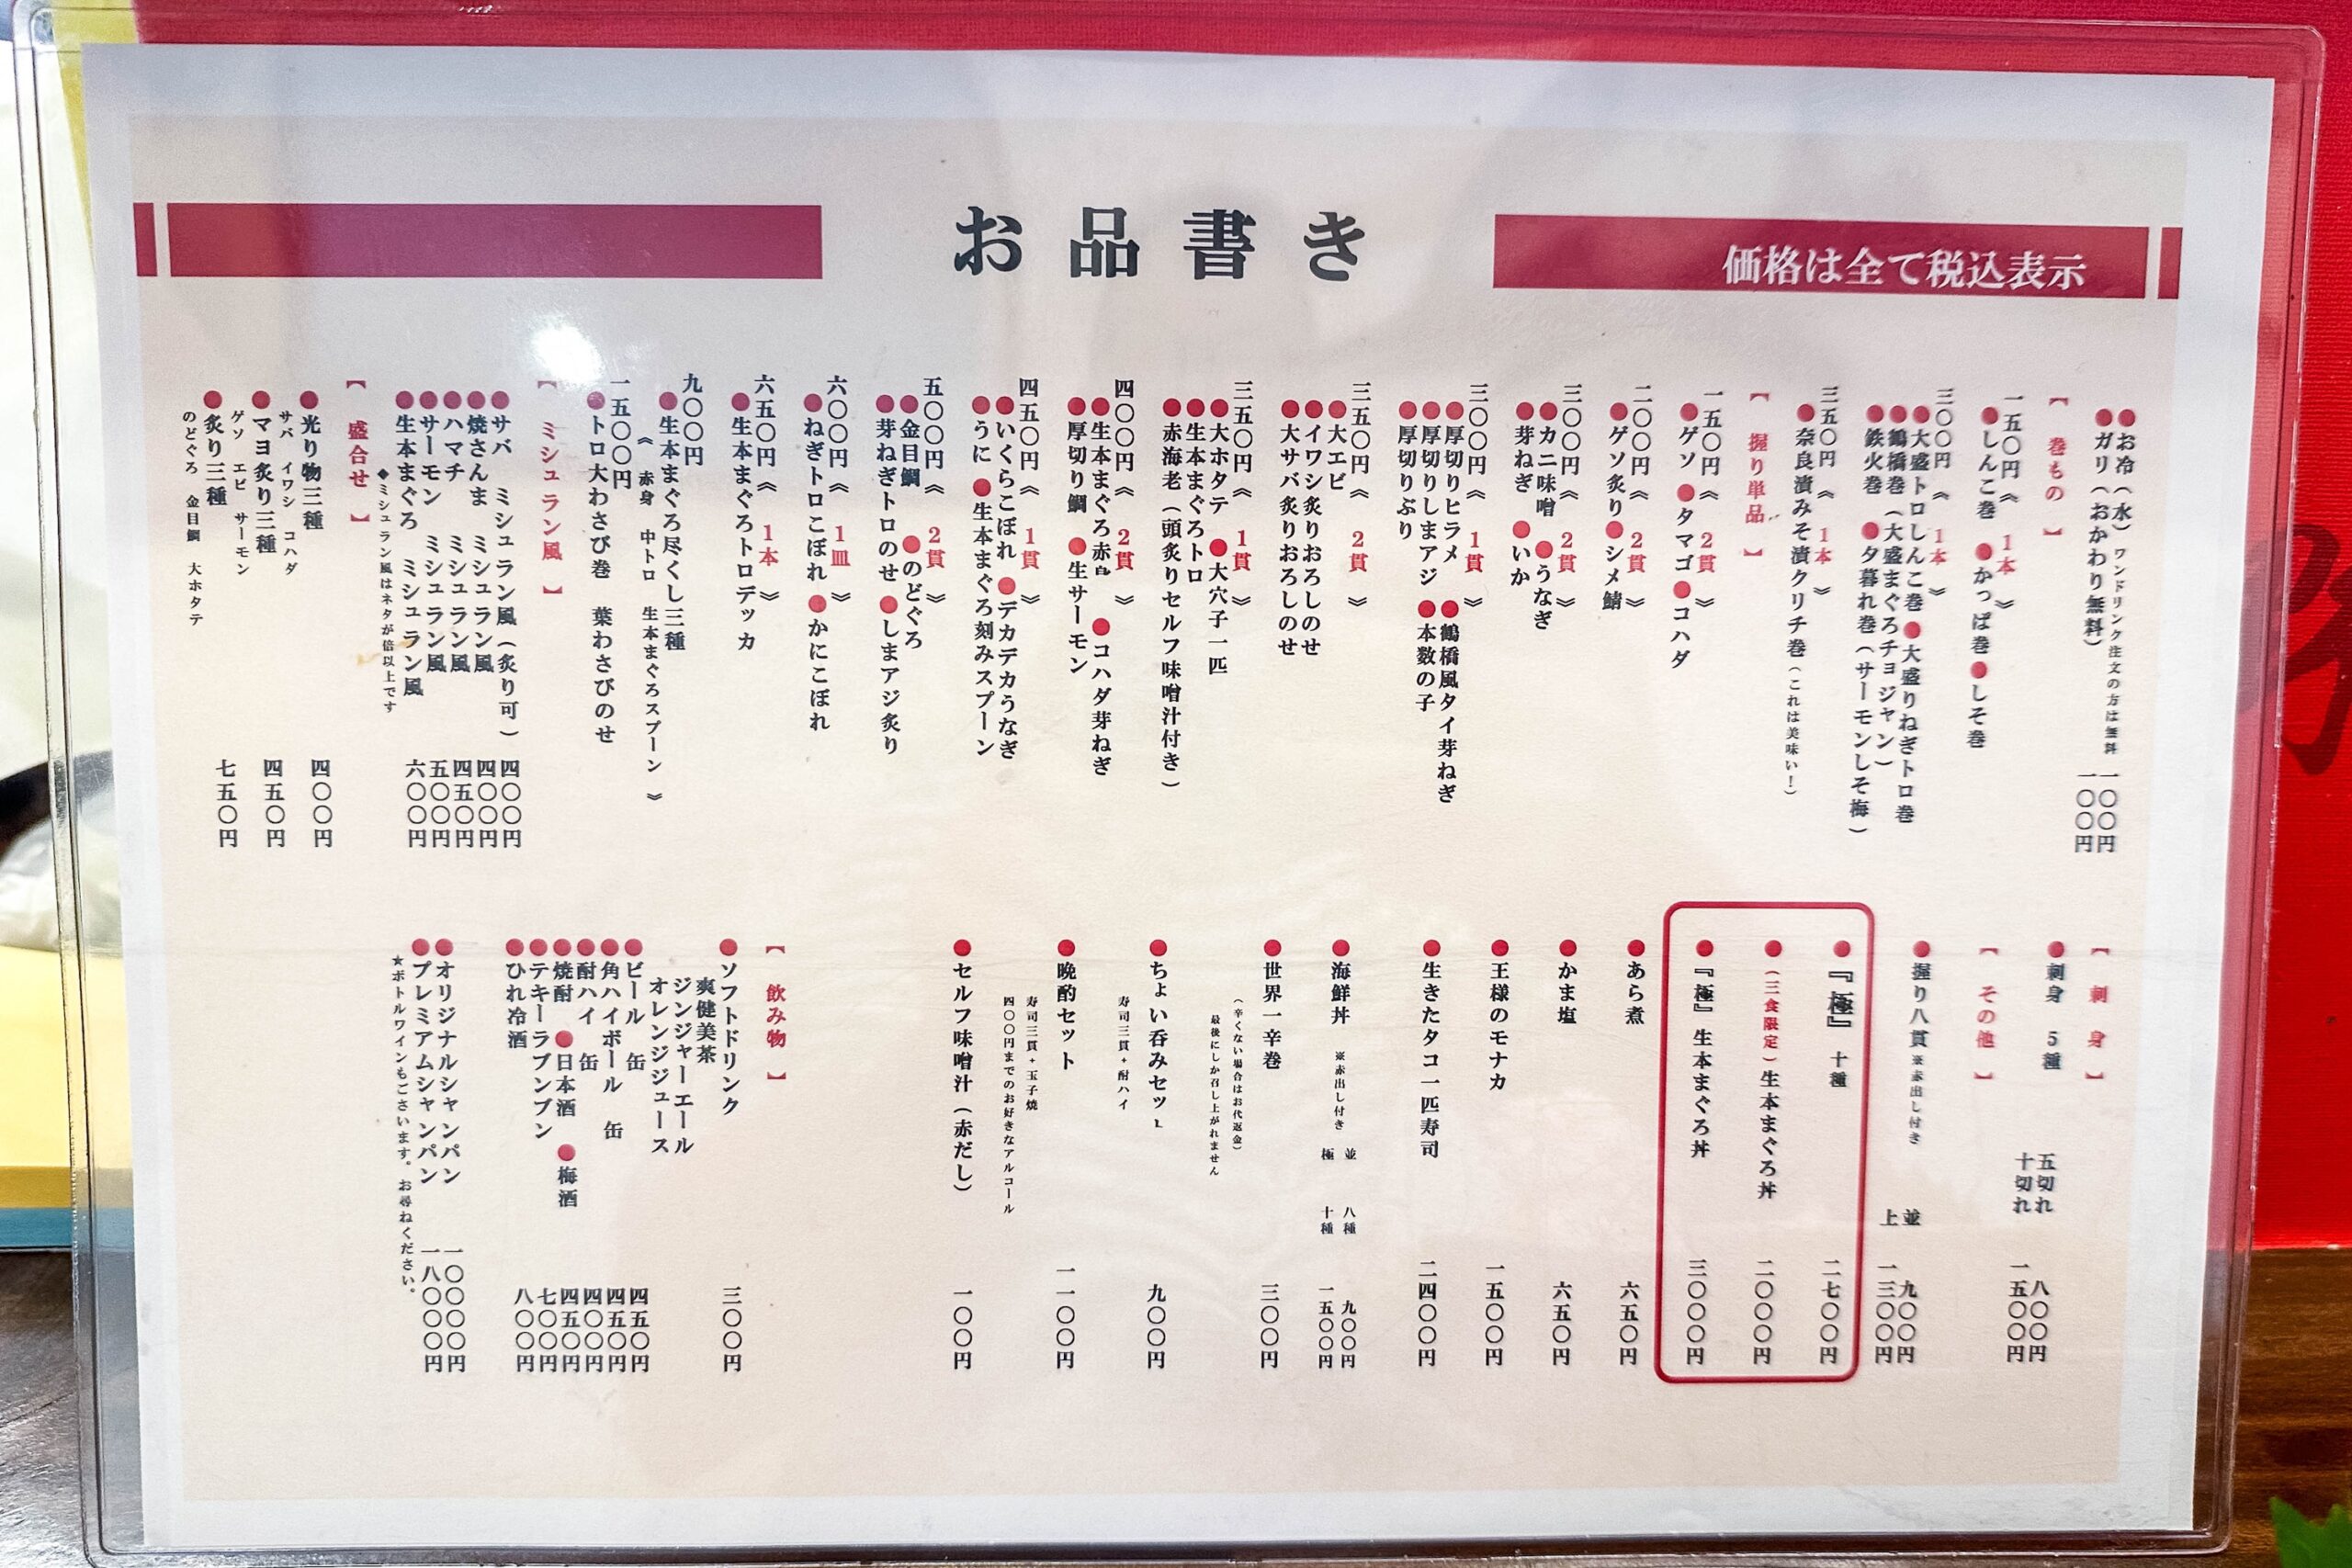 お品書き
価格は全て税込表示
●お冷(水) ワンドリンク注文の方は無料 一〇〇円
●ガリ(おかわり無料) 一〇〇円
【巻もの】
一五〇円《1本》
●しんこ巻 ●かっぱ巻 ●しそ巻
三〇〇円《1本》
●大盛トロしんこ巻 ●大盛りねぎトロ巻
●鶴橋巻(大盛まぐろチョジャン)
●鉄火巻 ●夕暮れ巻(サーモンしそ梅)
三五〇円《1本》
●奈良漬みそ漬クリチ巻(これは美味い!)
【握り単品】
一五〇円《2貫》
●ゲソ ●タマゴ ●コハダ
二〇〇円《2貫》
●ゲソ炙り ●シメ鯖
三〇〇円《2貫》
●カニ味噌 ●うなぎ
●芽ねぎ ●いか
三〇〇円《1貫》
●厚切りヒラメ ●鶴橋風タイ芽ねぎ
●厚切りしまアジ ●本数の子
●厚切りぶり
三五〇円《2貫》
●大エビ
●イワシ炙りおろしのせ
●大サバ炙りおろしのせ
三五〇円《1貫》
●大ホタテ ●大穴子一匹
●生本まぐろトロ
●赤海老(頭炙りセルフ味噌汁付き)
四〇〇円《2貫》
●生本まぐろ赤身 ●コハダ芽ねぎ
●厚切り鯛 ●生サーモン
四五〇円《1貫》
●いくらこぼれ ●デカデカうなぎ
●うに ●生本まぐろ刻みスプーン
五〇〇円《2貫》
●金目鯛 ●のどぐろ
●芽ねぎトロのせ ●しまアジ炙り
六〇〇円《1皿》
●ねぎトロこぼれ ●かにこぼれ
六五〇円《1本》
●生本まぐろトロデッカ
九〇〇円
●生本まぐろ尽くし三種
《赤身 中トロ 生本まぐろスプーン》
一五〇〇円
●トロ大わさび巻 葉わさびのせ
【ミシュラン風】
●サバ ミシュラン風(炙り可) 四〇〇円
●焼さんま ミシュラン風 四〇〇円
●ハマチ ミシュラン風 四五〇円
●サーモン ミシュラン風 五〇〇円
●生本まぐろ ミシュラン風 六〇〇円
◆ミシュラン風はネタが倍以上です
【盛合せ】
●光り物三種 四〇〇円
サバ イワシ コハダ
●マヨ炙り三種 四五〇円
ゲソ エビ サーモン
●炙り三種 七五〇円
のどぐろ 金目鯛 大ホタテ
【刺身】
●刺身 5種 五切れ 八〇〇円
十切れ 一五〇〇円
【その他】
●握り八貫 ※赤出し付き 並 九〇〇円
上 一三〇〇円
●『極』 十種 二七〇〇円
●(三食限定)生本まぐろ丼 二〇〇〇円
●『極』 生本まぐろ丼 三〇〇〇円
●あら煮 六五〇円
●かま塩 六五〇円
●王様のモナカ 一五〇〇円
●生きたタコ一匹寿司 二四〇〇円
●海鮮丼 ※赤出し付き 並 八種 九〇〇円
極 十種 一五〇〇円
●世界一辛巻 三〇〇円
(辛くない場合はお代返金)
最後にしか召し上がれません
●ちょい呑みセット 九〇〇円
寿司三貫+酎ハイ
●晩酌セット 一一〇〇円
寿司三貫+玉子焼
四〇〇円までのお好きなアルコール
●セルフ味噌汁(赤だし) 一〇〇円
【飲み物】
●ソフトドリンク 三〇〇円
爽健美茶
ジンジャーエール
オレンジジュース
●ビール 缶 四五〇円
●角ハイボール 缶 四五〇円
●酎ハイ 缶 四〇〇円
●焼酎 ●日本酒 ●梅酒 四五〇円
●テキーラブンブン 七〇〇円
●ひれ冷酒 八〇〇円
●オリジナルシャンパン 一〇〇〇〇円
●プレミアムシャンパン 一八〇〇〇円
★ボトルワインもございます。お尋ねください。